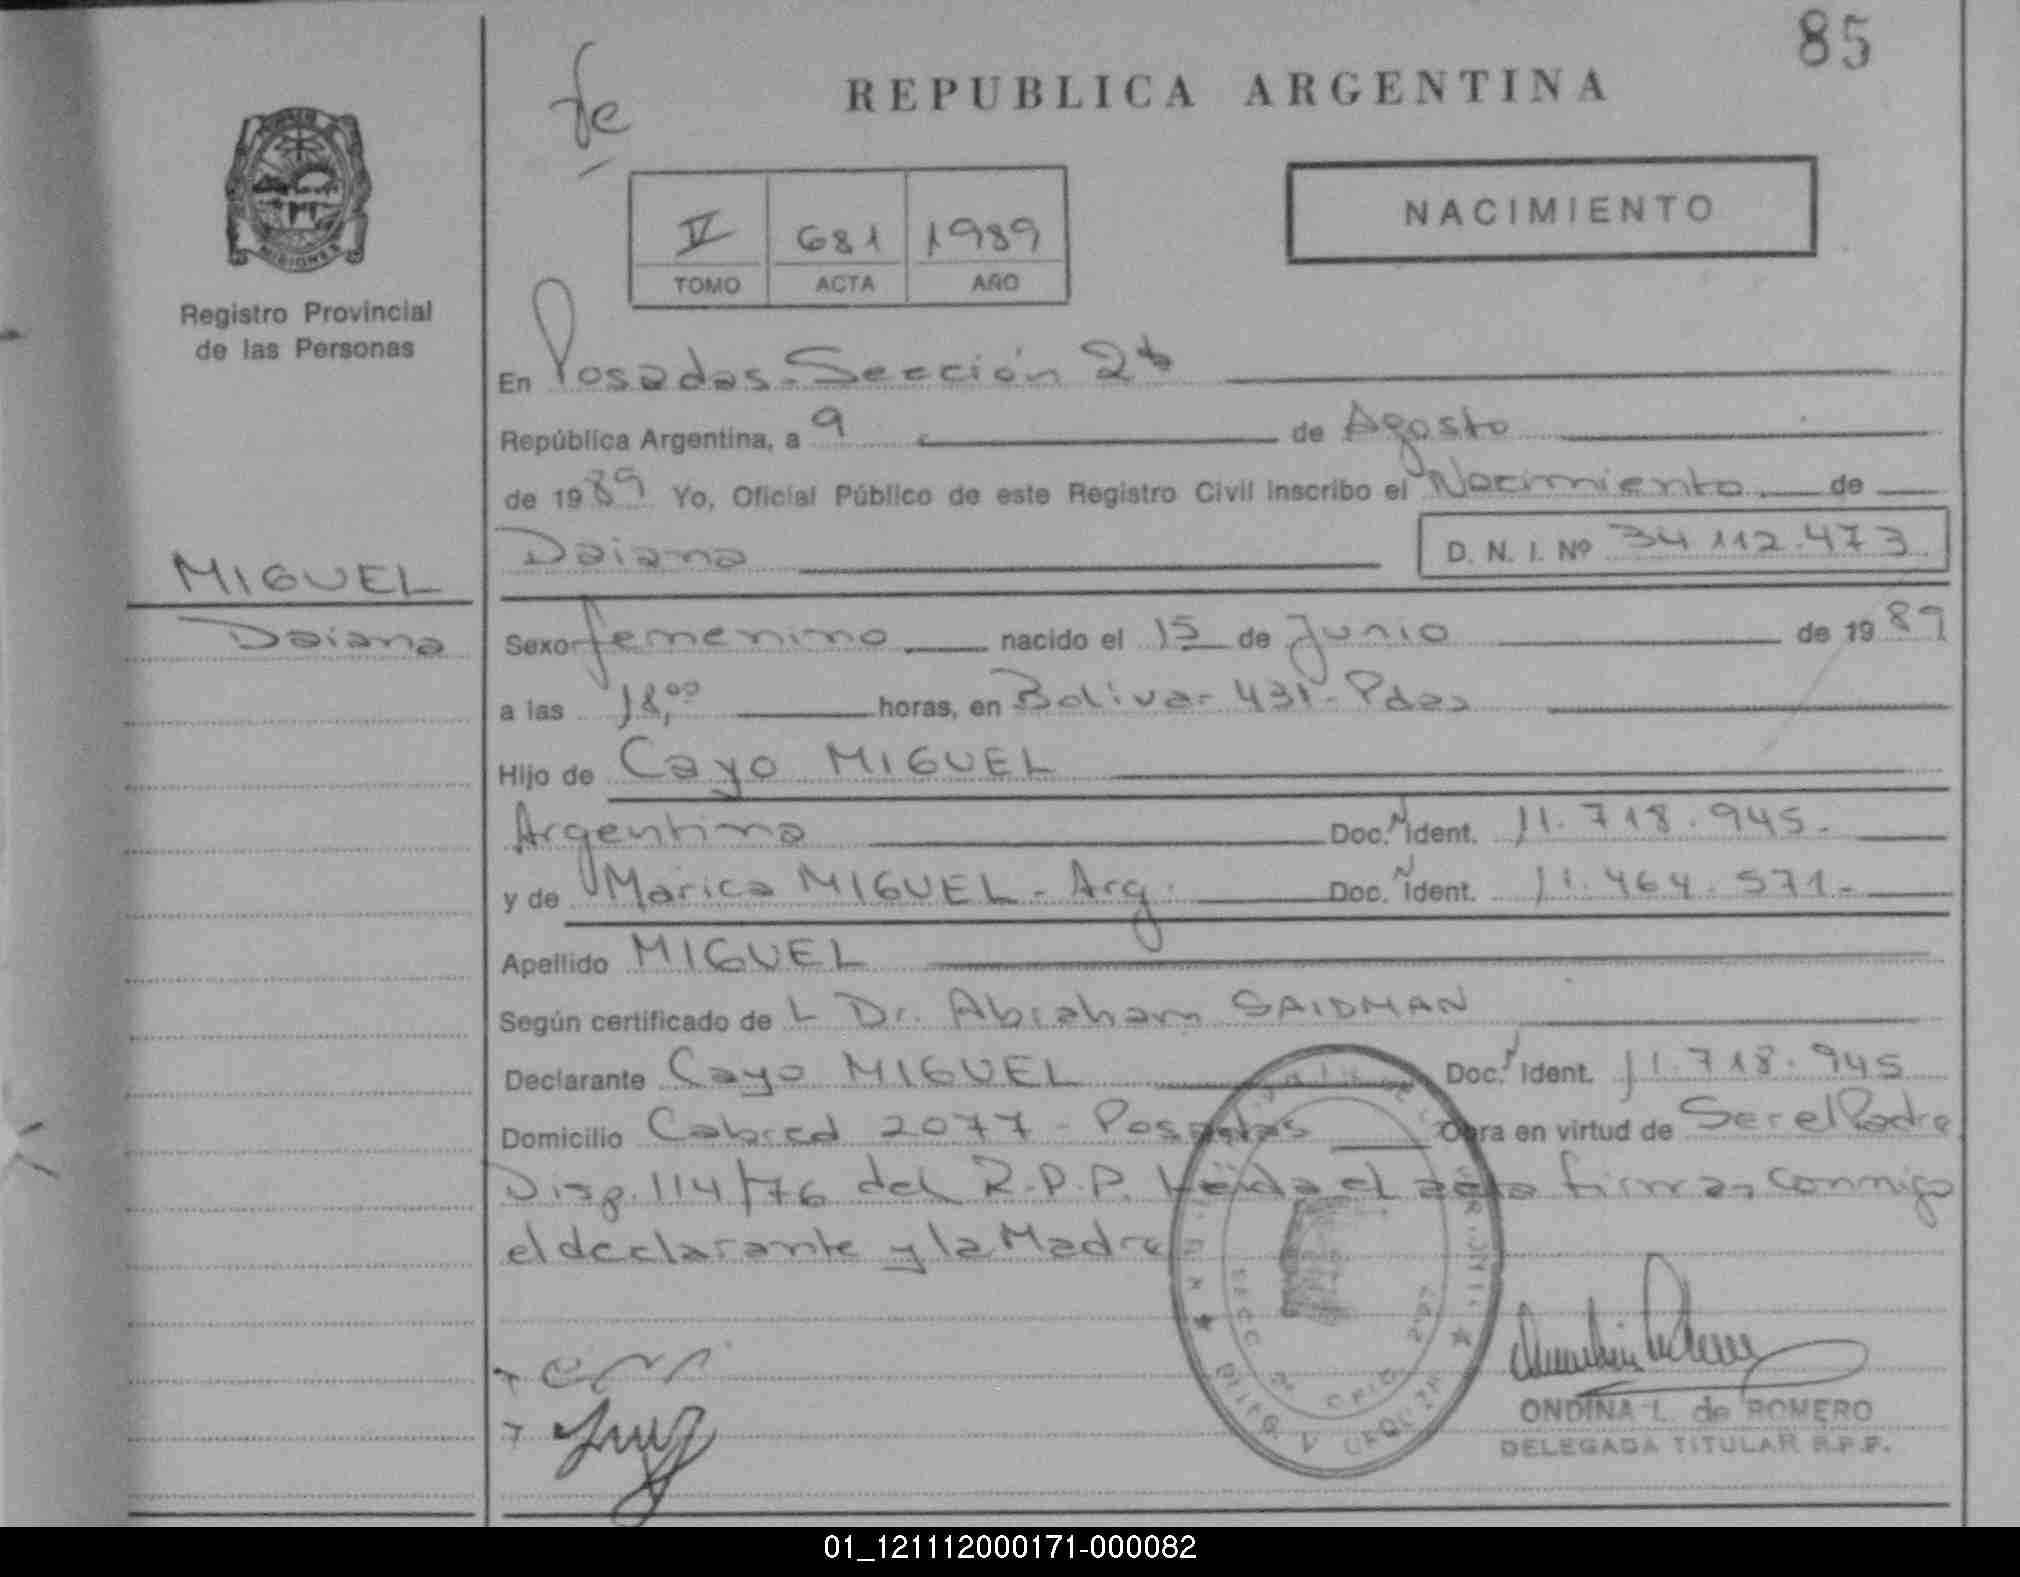 85
fe
REPUBLICA ARGENTINA
MISIONES
Registro Provincial
de las Personas
V 681 1989
TOMO ACTA AÑO
NACIMIENTO
En Posadas - Sección 2ª
República Argentina, a 9 de Agosto
de 1989 Yo, Oficial Público de este Registro Civil inscribo el Nacimiento de
Daiana D. N. I. Nº 34 112.473
MIGUEL
Daiana
Sexo femenino nacido el 15 de Junio de 1989
a las 18,00 horas, en Bolivar 431 - Pdas
Hijo de Cayo MIGUEL
Argentina Doc. N Ident. 11.718.945.-
y de Marica MIGUEL - Arg. Doc. N Ident. 11.464.571.-
Apellido MIGUEL
Según certificado de L Dr. Abraham SAIDMAN
Declarante Cayo MIGUEL Doc. N Ident. 11.718.945
Domicilio Cabred 2077 - Posadas Obra en virtud de Ser el Padre
Disp. 114/76 del R.P.P. Leida el acta firman conmigo
el declarante y la Madre
ONDINA L. de ROMERO
DELEGADA TITULAR R.P.P.
01_121112000171-000082